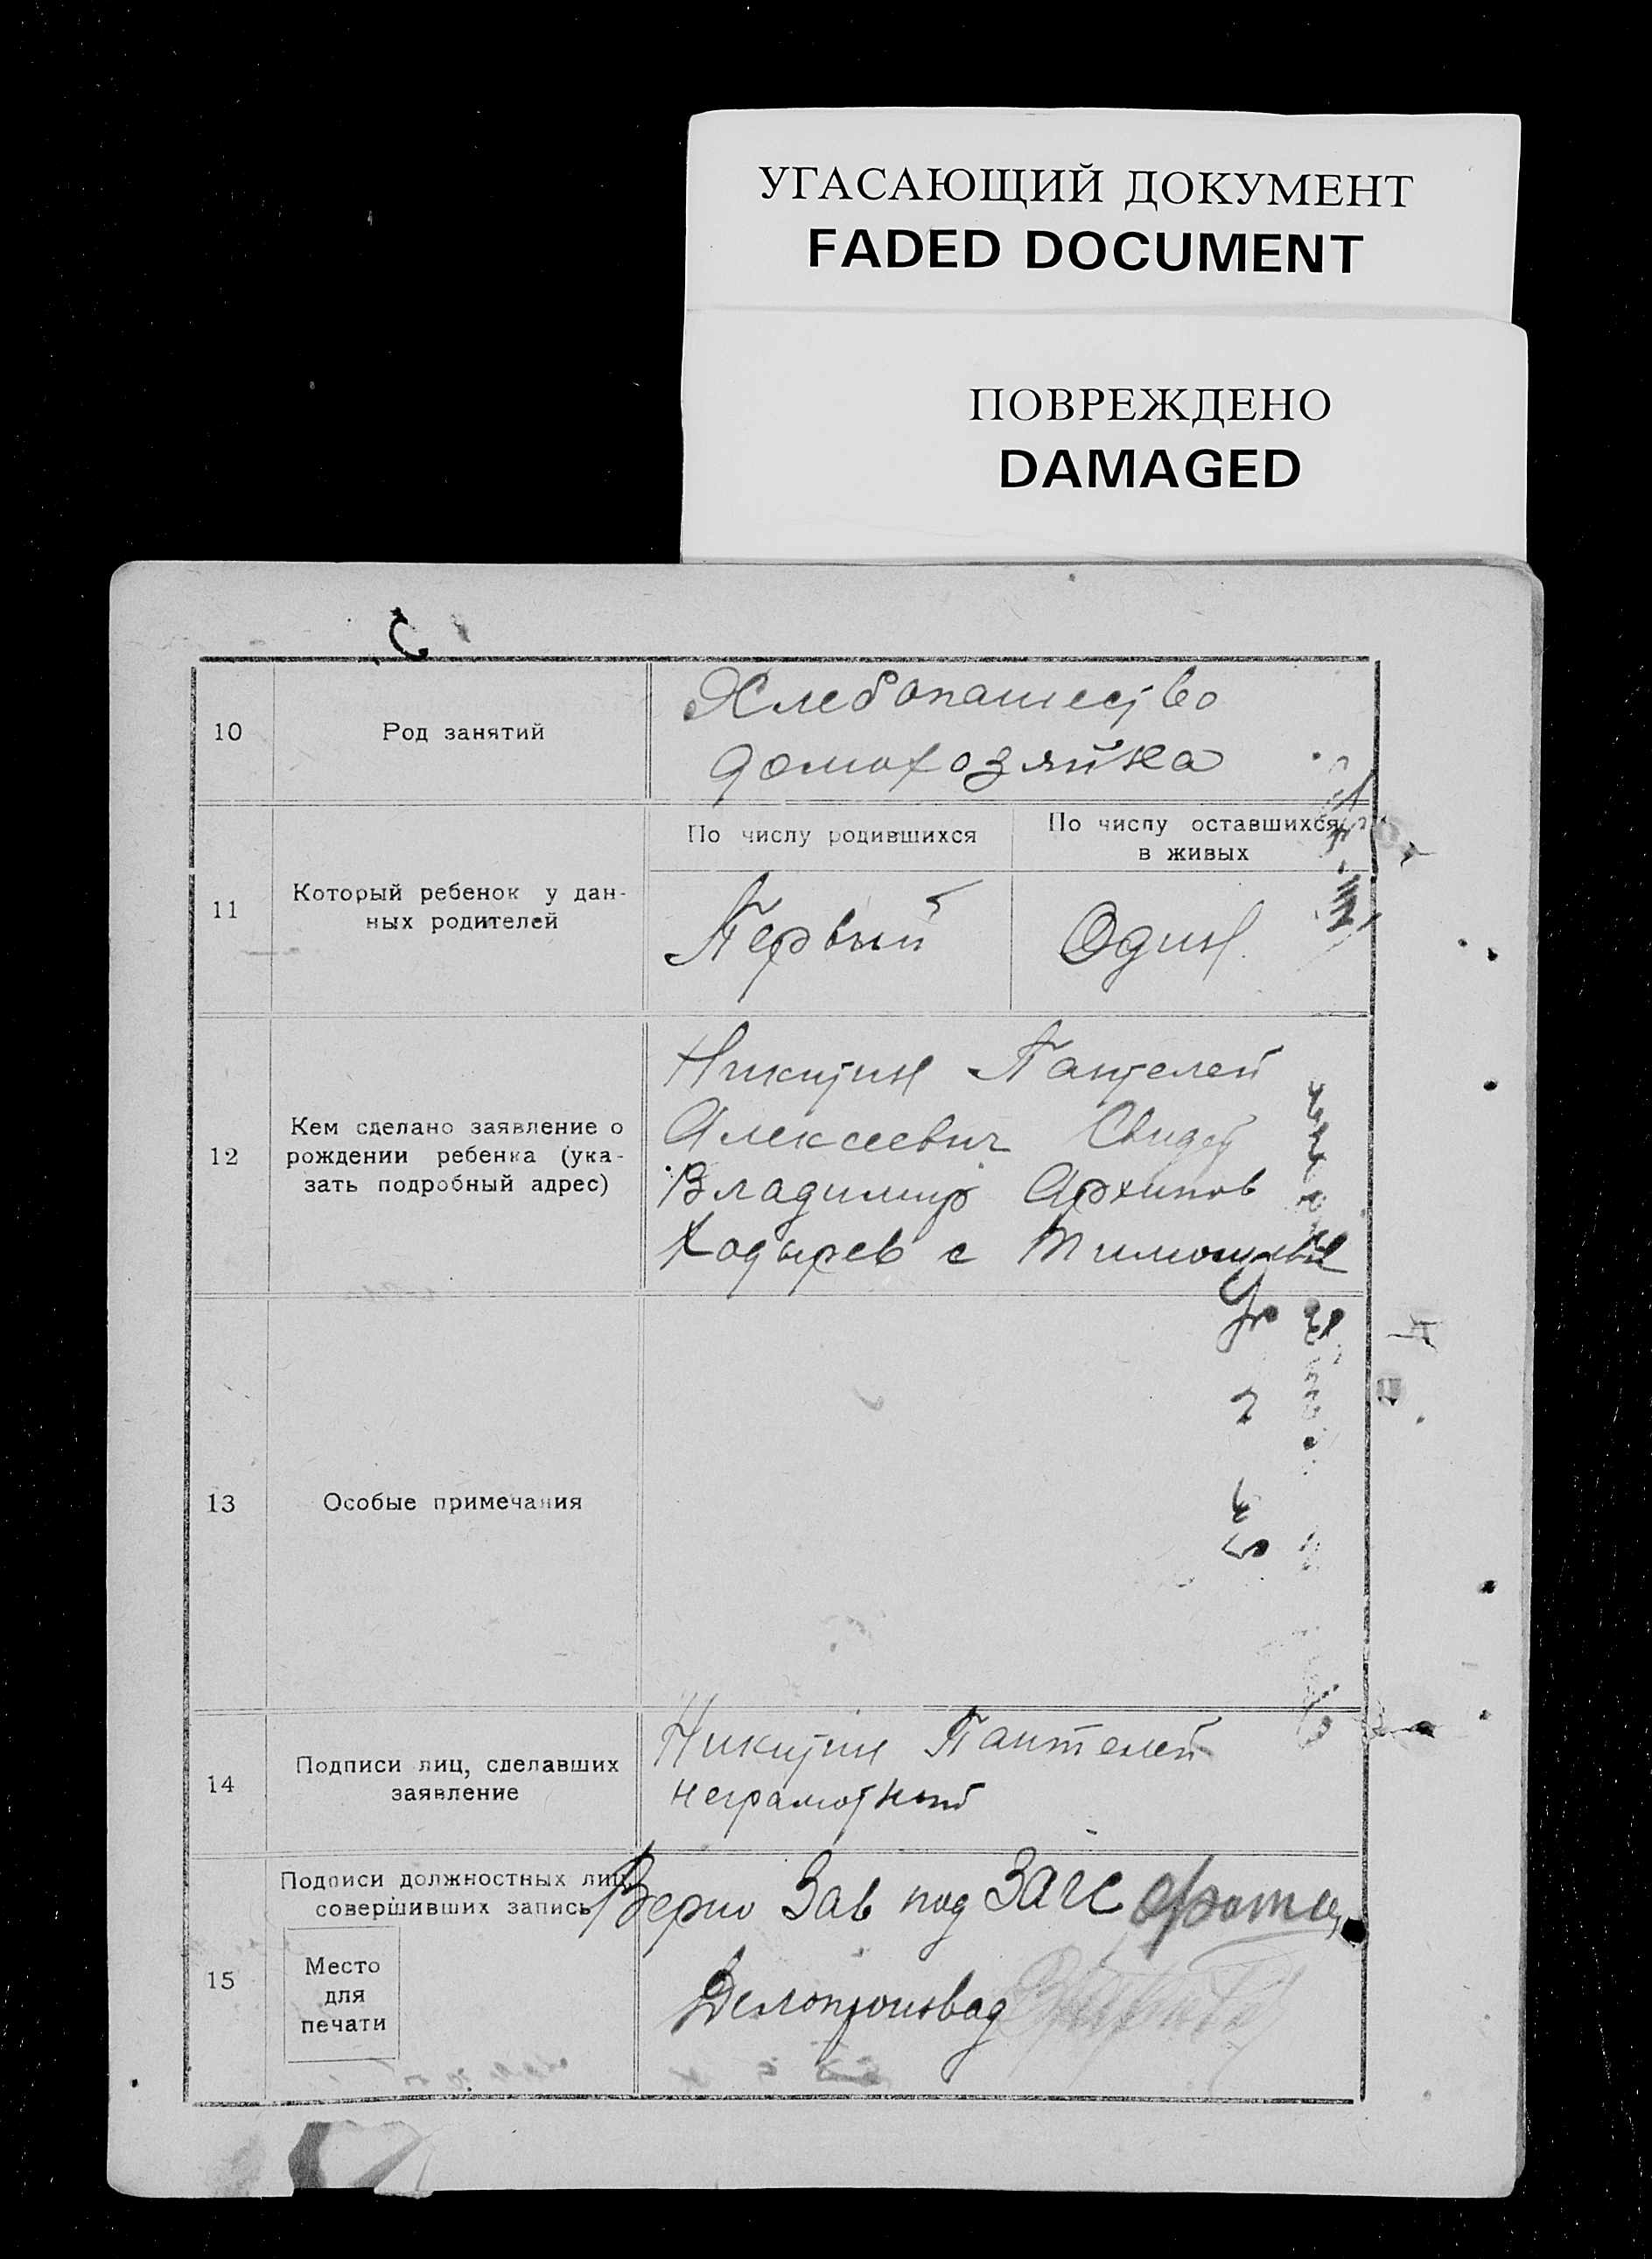 УГАСАЮЩИЙ ДОКУМЕНТ
FADED DOCUMENT
ПОВРЕЖДЕНО
DAMAGED
10
Род занятий
Хлебопашество
домохозяйка
11
Который ребенок у дан-
ных родителей
По числу родившихся
Первый
По числу оставшихся
в живых
Один
12
Кем сделано заявление о
рождении ребенка (ука-
зать подробный адрес)
Никитин Пантелей
Алексеевич Свидет
Владимир Архипов
Ходырев с
13
Особые примечания
14
Подписи лиц, сделавших
заявление
Никитин Пантелей
неграмотный
15
Подписи должностных лиц,
совершивших запись
Место
для
печати
Верно Зав под ЗАГС
Делопроизвод